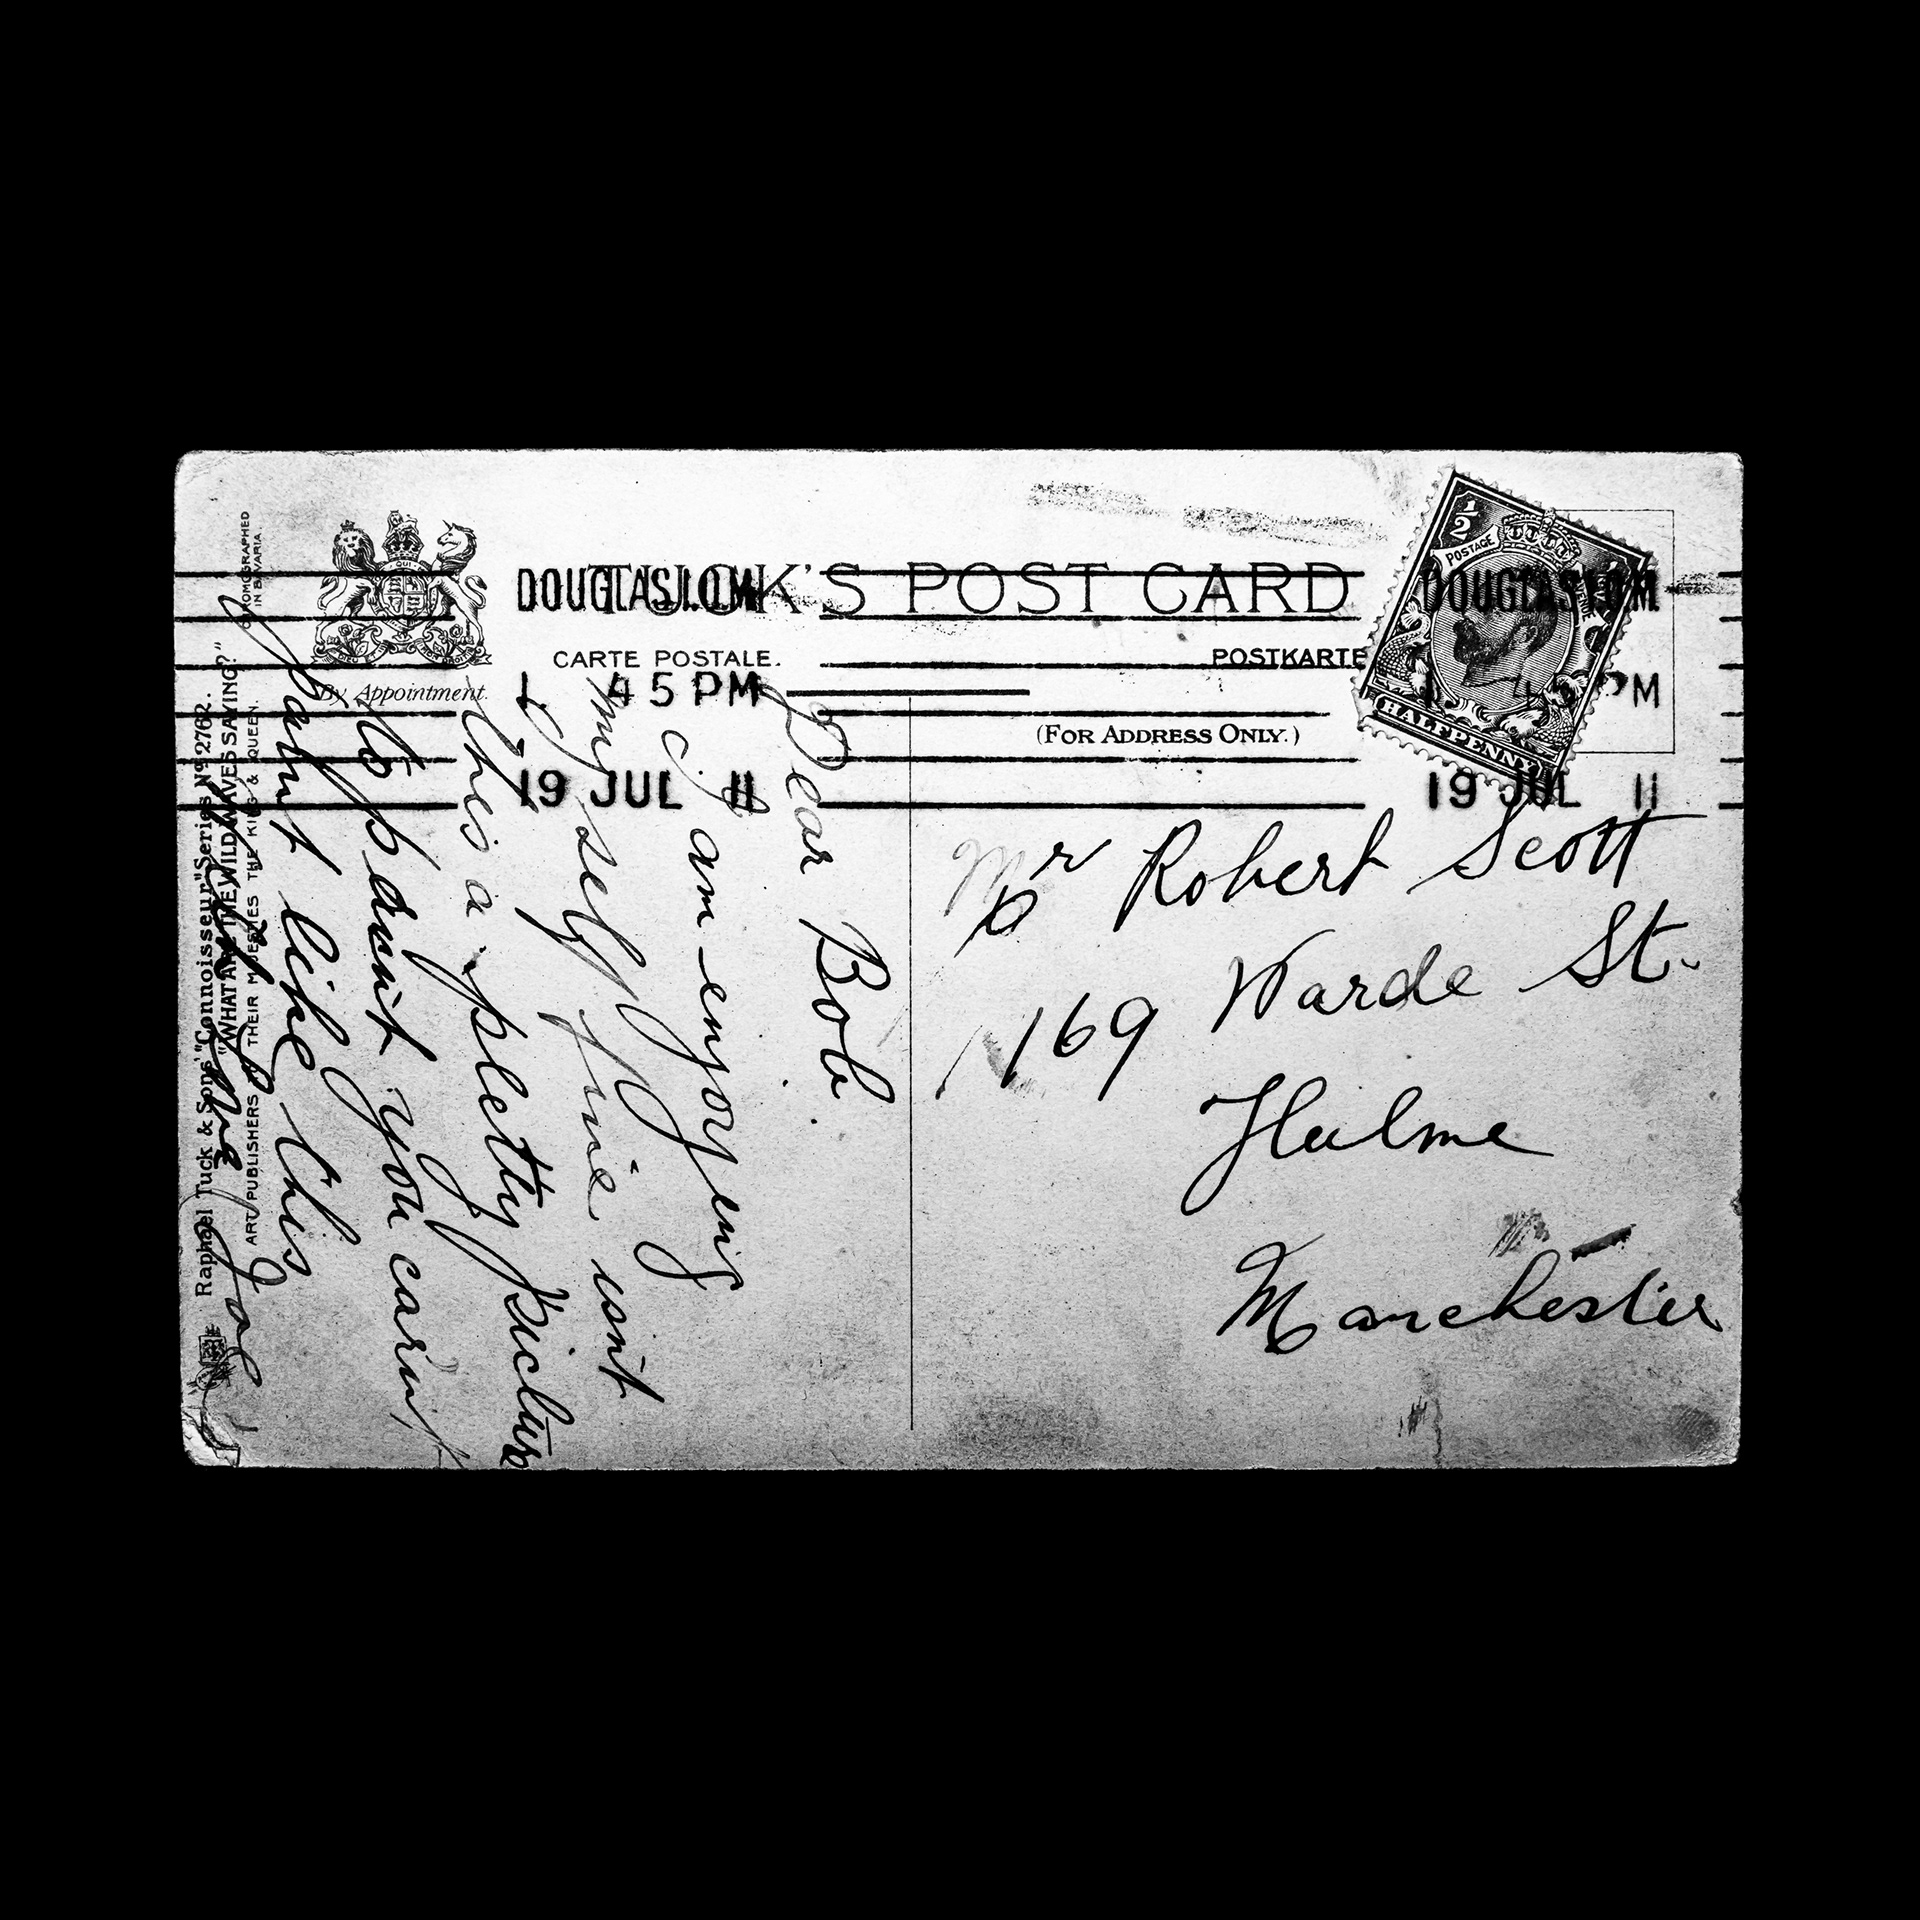 TUCK'S POST CARD
CARTE POSTALE.
POSTKARTE
(FOR ADDRESS ONLY.)
By Appointment.
DOUGLAS I.O.M
1 45 PM
19 JUL 11
DOUGLAS I.O.M
PM
19 JUL 11
POSTAGE
1/2
HALFPENNY
Mr Robert Scott
169 Warde St.
Hulme
Manchester
Dear Bob
I am enjoying
my self fine isnt
this a pletty picture
to paint you carnt
paint like this
Joe
CHROMOGRAPHED
IN BAVARIA.
Raphael Tuck & Sons' "Connoisseur" Series No 2762.
"WHAT ARE THE WILD WAVES SAYING?"
ART PUBLISHERS TO THEIR MAJESTIES THE KING & QUEEN.